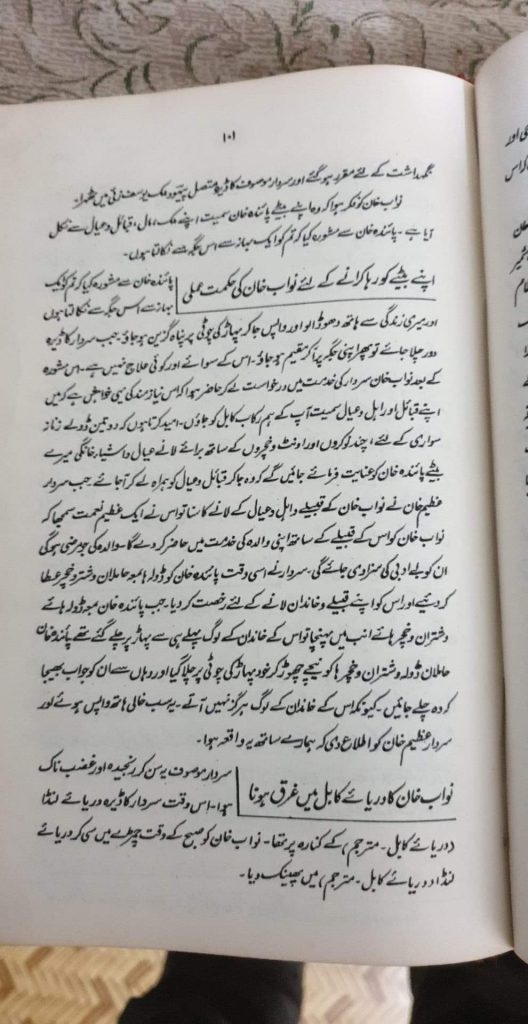 ۱۰۱
نگہداشت کے لئے مقرر ہو گئے اور سردار موصوف کا ڈیرہ متصل ملک یوسف زئی میں ٹھہرا۔
نواب خان کو فکر ہوا کہ وہ اپنے بیٹے پائندہ خان سمیت اپنے ملک، مال، قبائل و عیال سے نکل
آیا ہے۔ پائندہ خان سے مشورہ کیا کہ تم کو ایک بہانہ سے اس جگہ سے نکالتا ہوں۔
اپنے بیٹے کو رہا کرانے کے لئے نواب خان کی حکمت عملی
پائندہ خان سے مشورہ کیا کہ تم کو ایک
بہانے اس جگہ سے نکالتا ہوں
اور میری زندگی سے ہاتھ دھو ڈالو اور واپس جا کر پہاڑ کی چوٹی پر پناہ گزین ہو جاؤ۔ جب سردار کا ڈیرہ
دور چلا جائے تو پھر اپنی جگہ پر آ کر مقیم ہو جاؤ۔ اس کے سوائے اور کوئی علاج نہیں ہے۔ اس مشورہ
کے بعد نواب خان سردار کی خدمت میں درخواست لے کر حاضر ہوا کہ اس نیازمند کی یہی خواہش ہے کہ میں
اپنے قبائل اور اہل و عیال سمیت آپ کے ہم رکاب کابل کو جاؤں۔ امید کرتا ہوں کہ دو تین ڈولے زنانہ
سواری کے لئے، چند نوکروں اور اونٹ و خچروں کے ساتھ برائے لانے عیال و اشیاء خانگی میرے
بیٹے پائندہ خان کو عنایت فرمائے جائیں گے کہ وہ جا کر قبائل و عیال کو ہمراہ لے کر آ جائے۔ جب سردار
عظیم خان نے نواب خان کے قبیلے و اہل و عیال کے لانے کا سنا تو اس نے ایک عظیم نعمت سمجھا کہ
نواب خان کو اس کے قبیلے کے ساتھ اپنی والدہ کی خدمت میں حاضر کر دے گا۔ والدہ کی جو مرضی ہوگی
ان کو بے ادبی کی سزا دی جائے گی۔ سردار نے اسی وقت پائندہ خان کو ڈولہ ہا معہ حاملان و شتر و خچر عطا
کر دئیے اور اس کو اپنے قبیلے و خاندان لانے کے لئے رخصت کر دیا۔ جب پائندہ خان معہ ڈولہ ہائے
و شتران و خچر ہائے انب میں پہنچا تو اس کے خاندان کے لوگ پہلے ہی سے پہاڑ پر چلے گئے تھے پائندہ خان
حاملان ڈولہ و شتران و خچر ہا کو نیچے چھوڑ کر خود پہاڑ کی چوٹی پر چلا گیا اور وہاں سے ان کو جواب بھیجا
کہ وہ چلے جائیں۔ کیونکہ اس کے خاندان کے لوگ ہرگز نہیں آتے۔ یہ سب خالی ہاتھ واپس ہوئے اور
سردار عظیم خان کو اطلاع دی کہ ہمارے ساتھ یہ واقعہ ہوا۔
نواب خان کا دریائے کابل میں غرق ہونا
سردار موصوف یہ سن کر رنجیدہ اور غضب ناک
ہوا۔ اس وقت سردار کا ڈیرہ دریائے لنڈا
(دریائے کابل۔ مترجم) کے کنارہ پر تھا۔ نواب خان کو صبح کے وقت چمڑے میں سی کر دریائے
لنڈا (دریائے کابل۔ مترجم) میں پھینک دیا۔